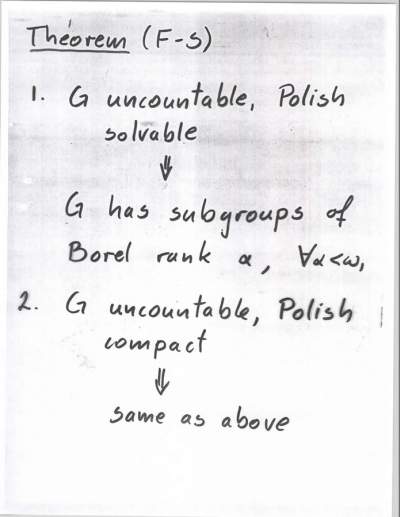 Theorem (F-S)
1. G uncountable, Polish
solvable
⇓
G has subgroups of
Borel rank α, ∀α<ω₁
2. G uncountable, Polish
compact
⇓
same as above